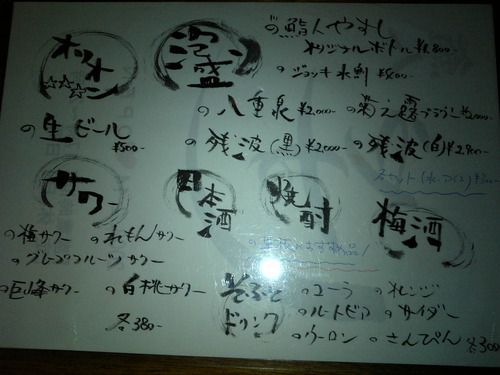 オリオン
☆☆☆
の生ビール
¥500-
泡盛
の鮨人やすし
オリジナルボトル ¥1,800-
のジョッキ水割 ¥500-
の八重泉 ¥2,000- の菊之露ブラウン ¥2,000-
の残波(黒) ¥2,000- の残波(白) ¥2,900-
サワー
の梅サワー のれもんサワー
のグレープフルーツサワー
の巨峰サワー の白桃サワー
各380-
日本酒
焼酎
梅酒
そふと
ドリンク
のコーラ のオレンジ
のルートビア のサイダー
のウーロン のさんぴん 各300